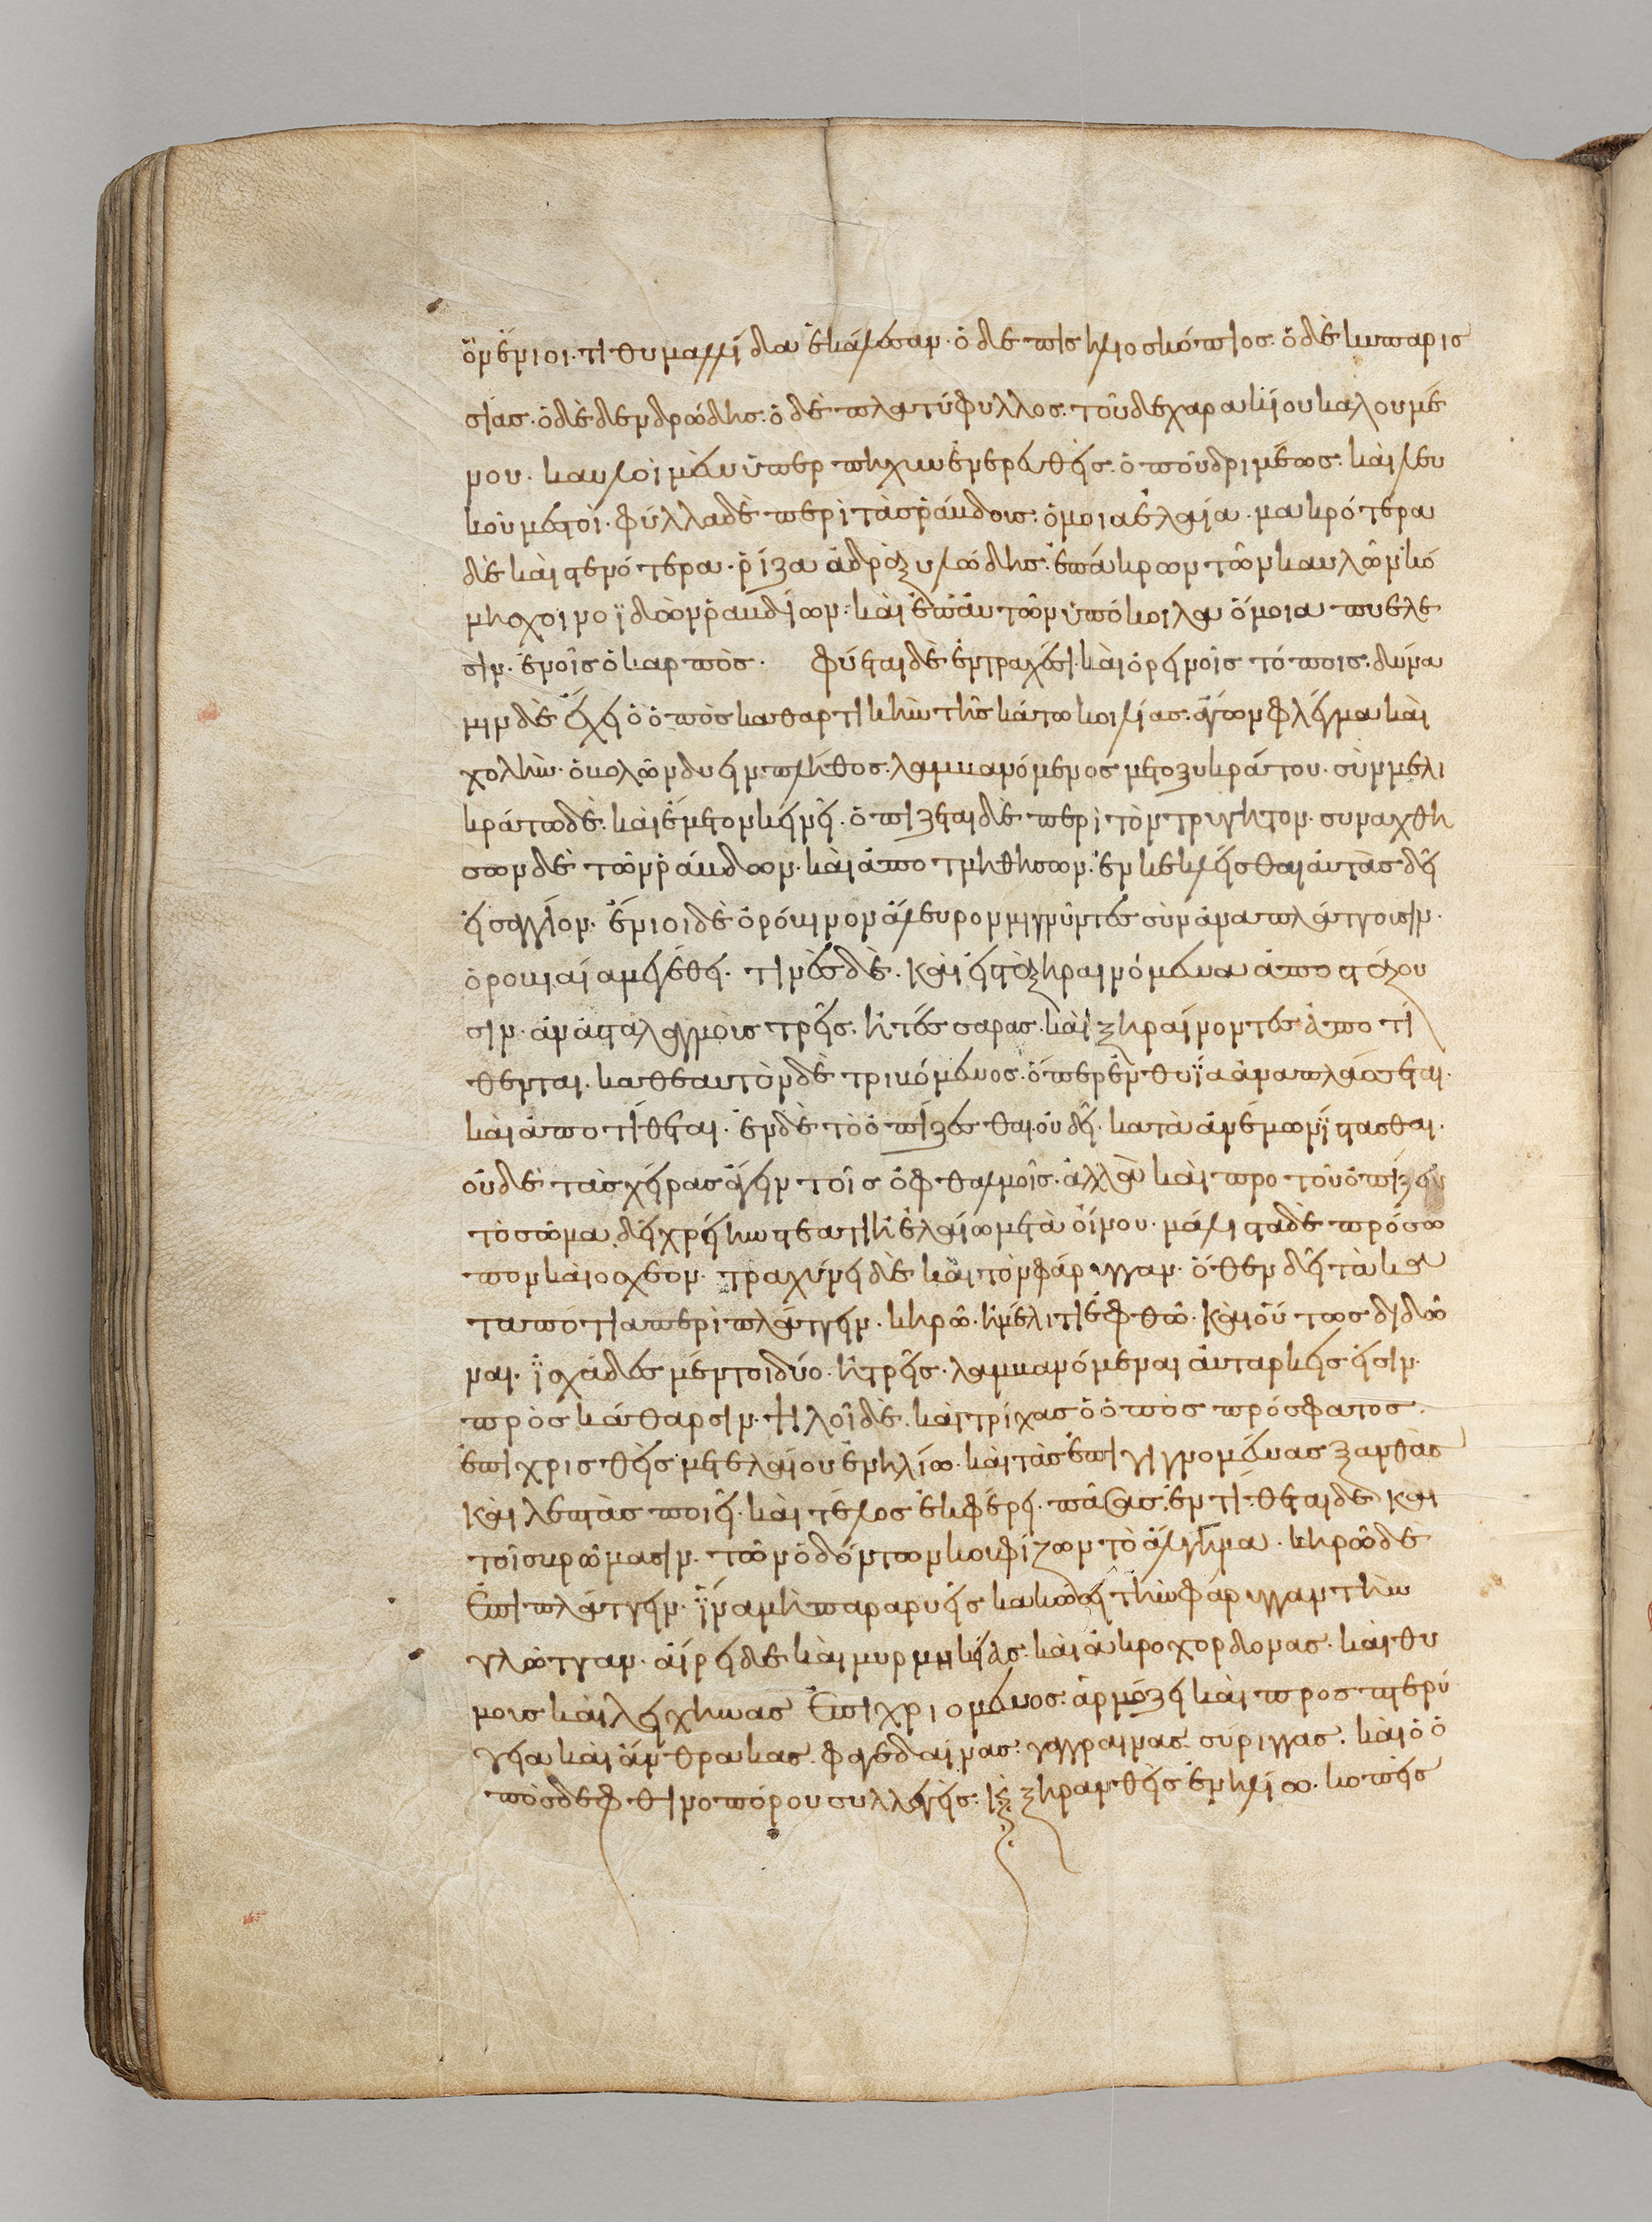 ὃν ἔνιοι· τιθυμαλλίδα ἐκάλεσαν· ὁ δέ τις ἡλιοσκόπιος· ὁ δὲ κυπαρισ
σίας· ὁ δὲ δενδρώδης· ὁ δὲ πλατύφυλλος· τοῦ δὲ χαρακίου καλουμέ
νου· καυλοὶ μὲν ὑπὲρ πῆχυν ἐνερευθεῖς· ὀποῦ δριμέως· καὶ λευ
κοῦ μεστοί· φύλλα δὲ περὶ τὰς ῥάβδοις· ὅμοια ἐλαία· μακρότερα
δὲ καὶ στενότερα· ῥίζα ἁδρὰ ξυλώδης· ἐπάκρων τῶν καυλῶν κό
μη σχοινοϊδῶν ῥαβδίων· καὶ ἐπ' αὐτῶν ὑπόκοιλα ὅμοια πυελε
σιν· ἐν οἷς ὁ καρπὸς· φύεται δὲ ἐν τραχέσι· καὶ ὀρεινοῖς τόποις· δύνα
μιν δὲ ἔχει ὁ ὀπὸς καθαρτικὴν τῆς κάτω κοιλίας· ἄγων φλέγμα καὶ
χολὴν· ὀβολῶν δυεῖν πλῆθος· λαμβανόμενος μετ' ὀξυκράτου· σὺν μελι
κράτω δὲ· καὶ ἔμετον κεινεῖ· ὀπίζεται δὲ περὶ τὸν τρυγητον· συναχθη
σων δὲ τῶν ῥάβδων· καὶ ἀποτμηθησων· ἐν κεκλεῖσθαι αὐτὰς δεῖ
εἰς ἀγγῖον· ἔνιοι δὲ ὀρόβινον ἄλευρον μιγνύντες συν ἀναπλάττουσιν·
ὀροβιαία μεγέθει· τινὲς δὲ· καὶ εἰς τὰ ξηραινόμενα ἀποστάζου
σιν· ἀνὰ σταλαγμοὺς τρεῖς· ἢ τέσσαρας· καὶ ξηραίνοντες ἀποτί
θενται· καθεαυτὸν δὲ τριβόμενος· ὅπερ ἐν θυΐα ἀναπλάσσεται·
καὶ ἀποτίθεται· ἐν δὲ τὸ ὀπίζεσθαι οὐ δεῖ· κατὰ ἀνέμων ἵστασθαι·
οὐδὲ τὰς χεῖρας ἄγειν τοῖς ὀφθαλμοῖς· ἀλλὰ καὶ προ τοῦ ὀπίζειν
τὸ σῶμα δεῖ χρείειν στέατι ἢ ἐλαίω μετὰ οἴνου· μάλιστα δὲ πρόσω
πον καὶ οσχεον· τραχύνει δὲ καὶ τὸν φάρυγγαν· ὅθεν δεῖ τὰ κα
ταπότια περιπλάττειν· κηρῶ· ἢ μέλιτι ἑφθῶ· καὶ οὕτως διδό
ναι· ἰσχάδες μέντοι δύο· ἢ τρεῖς· λαμβανόμεναι αὐταρκεῖς εἰσιν·
πρὸς κάθαρσιν· ψιλοῖ δὲ· καὶ τρίχας ὁ ὀπὸς πρόσφατος·
ἐπιχρισθεὶς μετ' ἐλαίου ἐν ἡλίω· καὶ τὰς ἐπιγιγνομένας ξανθὰς
καὶ λεπτὰς ποιεῖ· καὶ τέλος ἐκφέρει· πάσας· ἐντίθεται δὲ καὶ
τοῖς βρώμασιν· τῶν ὀδόντων κουφίζων τὸ ἄλγημα· κηρῶ δὲ
ἐπιπλάττειν· ἵνα μὴ παραρυεὶς κακώσει τὴν φάρυγγαν τὴν
γλῶτταν· αἴρει δὲ καὶ μυρμηκίας· καὶ ἀκροχορδονας· καὶ θυ
μους καὶ λειχῆνας ἐπιχριομενος· ἁρμόζει καὶ προς πτερύ
γεια καὶ ἄνθρακας· φαγεδαίνας· γαγγραινας· σύριγγας· καὶ ὁ ὀ
πὸς δὲ φθινοπόρου συλλεγεὶς· ξηρανθεὶς ἐν ἡλίω· κοπεὶς